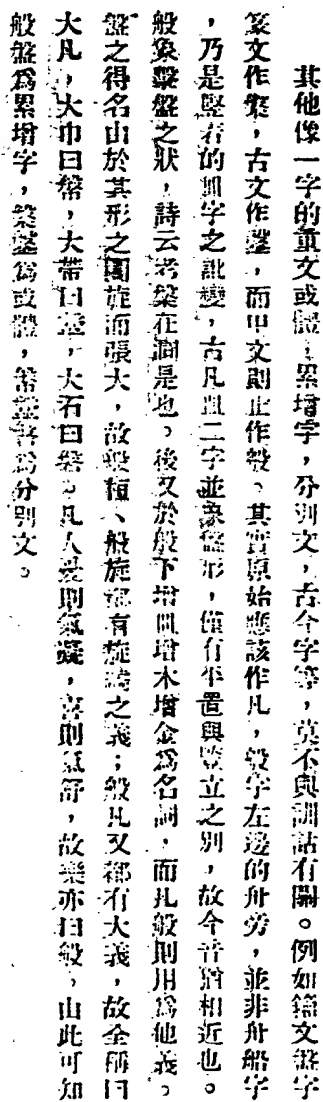 其他像一字的重文或體，累增字，分別文，古今字等，莫不與訓詁有關。例如籀文盤字
篆文作槃，古文作鎜，而甲文則止作般。其實原始應該作凡，般字左邊的舟旁，並非舟船字
，乃是豎着的皿字之訛變，古凡皿二字並象盤形，僅有平置與豎立之別，故今音猶相近也。
般象擊盤之狀，詩云考槃在澗是也。後又於般下增皿增木增金爲名詞，而凡般則用爲他義。
盤之得名由於其形之圜旋而張大，故般桓、般旋都有旋轉之義；般凡又都有大義，故全稱曰
大凡，大巾曰幋，大帶曰鞶，大石曰磐。凡人憂則氣凝，喜則氣舒，故樂亦曰般，由此可知
般盤爲累增字，槃鎜爲或體，幋鞶磐爲分別文。